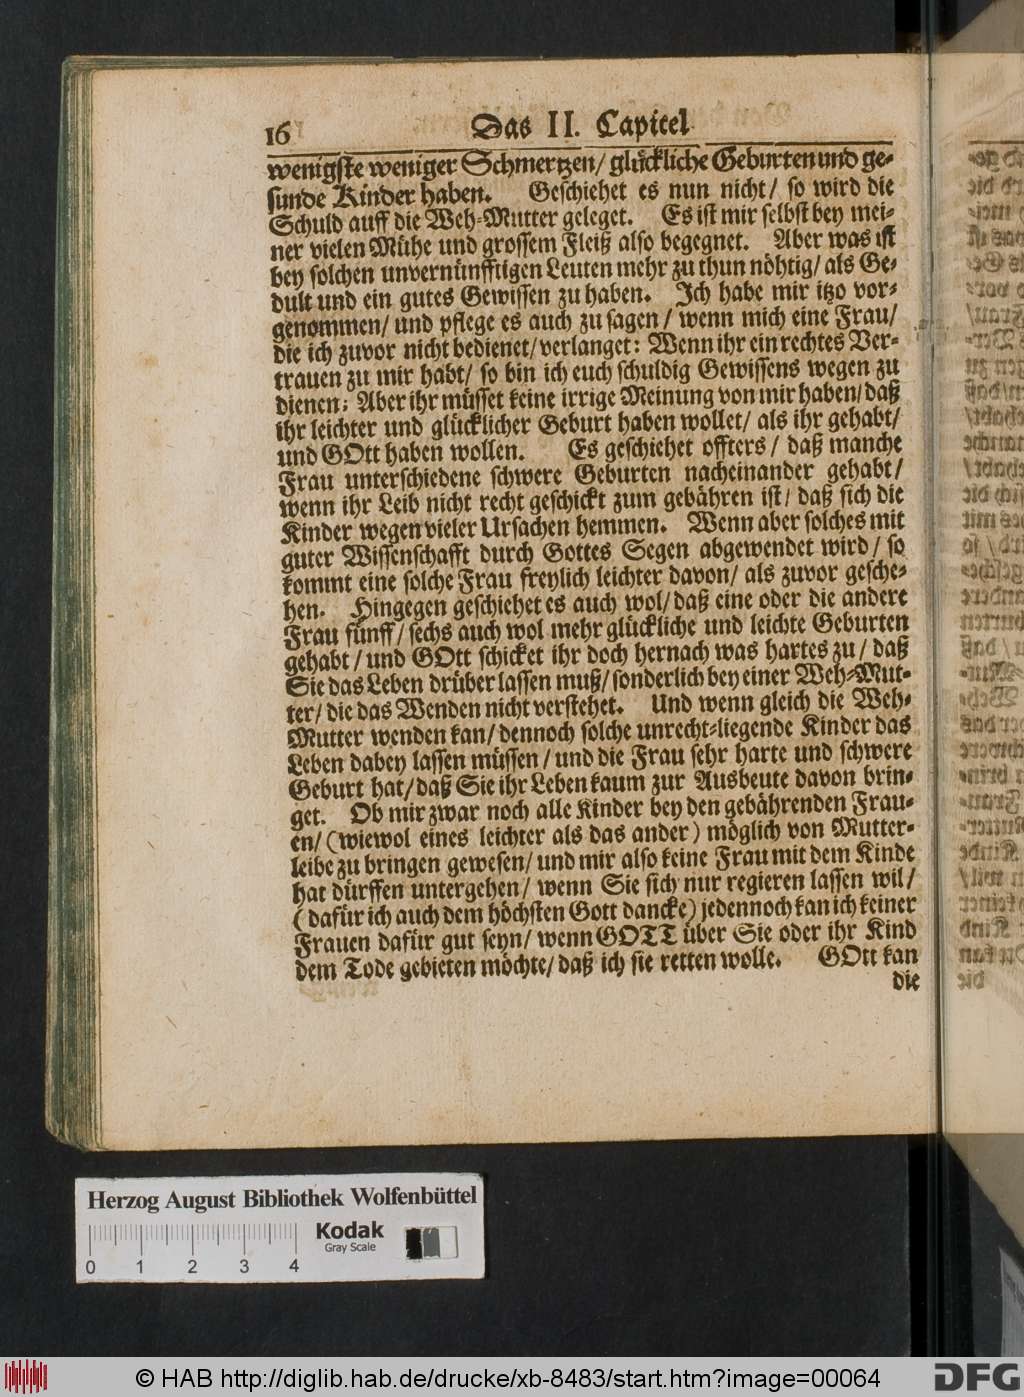 16 Das II. Capitel
wenigste weniger Schmertzen/ glückliche Geburten und ge-
sunde Kinder haben. Geschiehet es nun nicht/ so wird die
Schuld auff die Weh-Mutter geleget. Es ist mir selbst bey mei-
ner vielen Mühe und grossem Fleiß also begegnet. Aber was ist
bey solchen unvernünfftigen Leuten mehr zu thun nöhtig/ als Ge-
dult und ein gutes Gewissen zu haben. Ich habe mir itzo vor-
genommen/ und pflege es auch zu sagen/ wenn mich eine Frau/
die ich zuvor nicht bedienet/ verlanget: Wenn ihr ein rechtes Ver-
trauen zu mir habt/ so bin ich euch schuldig Gewissens wegen zu
dienen; Aber ihr müsset keine irrige Meinung von mir haben/ daß
ihr leichter und glücklicher Geburt haben wollet/ als ihr gehabt/
und GOtt haben wollen. Es geschiehet offters/ daß manche
Frau unterschiedene schwere Geburten nacheinander gehabt/
wenn ihr Leib nicht recht geschickt zum gebähren ist/ daß sich die
Kinder wegen vieler Ursachen hemmen. Wenn aber solches mit
guter Wissenschafft durch Gottes Segen abgewendet wird/ so
kommt eine solche Frau freylich leichter davon/ als zuvor gesche-
hen. Hingegen geschiehet es auch wol/ daß eine oder die andere
Frau fünff/ sechs auch wol mehr glückliche und leichte Geburten
gehabt/ und GOtt schicket ihr doch hernach was hartes zu/ daß
Sie das Leben drüber lassen muß/ sonderlich bey einer Weh-Mut-
ter/ die das Wenden nicht verstehet. Und wenn gleich die Weh-
Mutter wenden kan/ dennoch solche unrecht-liegende Kinder das
Leben dabey lassen müssen/ und die Frau sehr harte und schwere
Geburt hat/ daß Sie ihr Leben kaum zur Ausbeute davon brin-
get. Ob mir zwar noch alle Kinder bey den gebährenden Frau-
en/ (wiewol eines leichter als das ander) möglich von Mutter-
leibe zu bringen gewesen/ und mir also keine Frau mit dem Kinde
hat dürffen untergehen/ wenn Sie sich nur regieren lassen wil/
(dafür ich auch dem höchsten Gott dancke) jedennoch kan ich keiner
Frauen dafür gut seyn/ wenn GOTT über Sie oder ihr Kind
dem Tode gebieten möchte/ daß ich sie retten wolle. GOtt kan
die
Herzog August Bibliothek Wolfenbüttel
Kodak
Gray Scale
0 1 2 3 4
© HAB http://diglib.hab.de/drucke/xb-8483/start.htm?image=00064
DFG